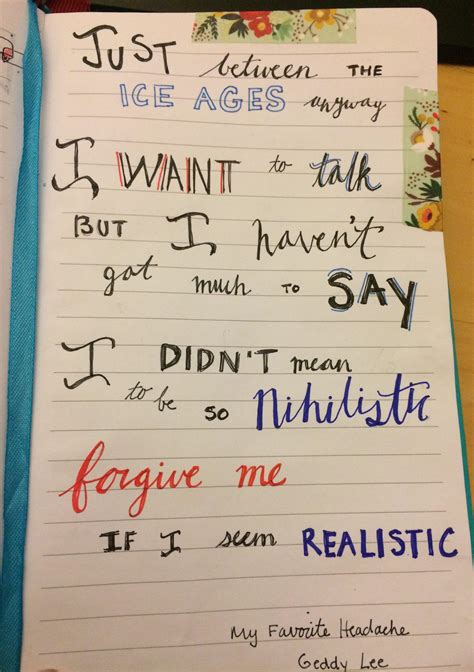 JUST between THE
ICE AGES anyway
I WANT to talk
BUT I haven't
got much TO SAY
I DIDN'T mean
to be so Nihilistic
forgive me
IF I seem REALISTIC
My Favorite Headache
Geddy Lee